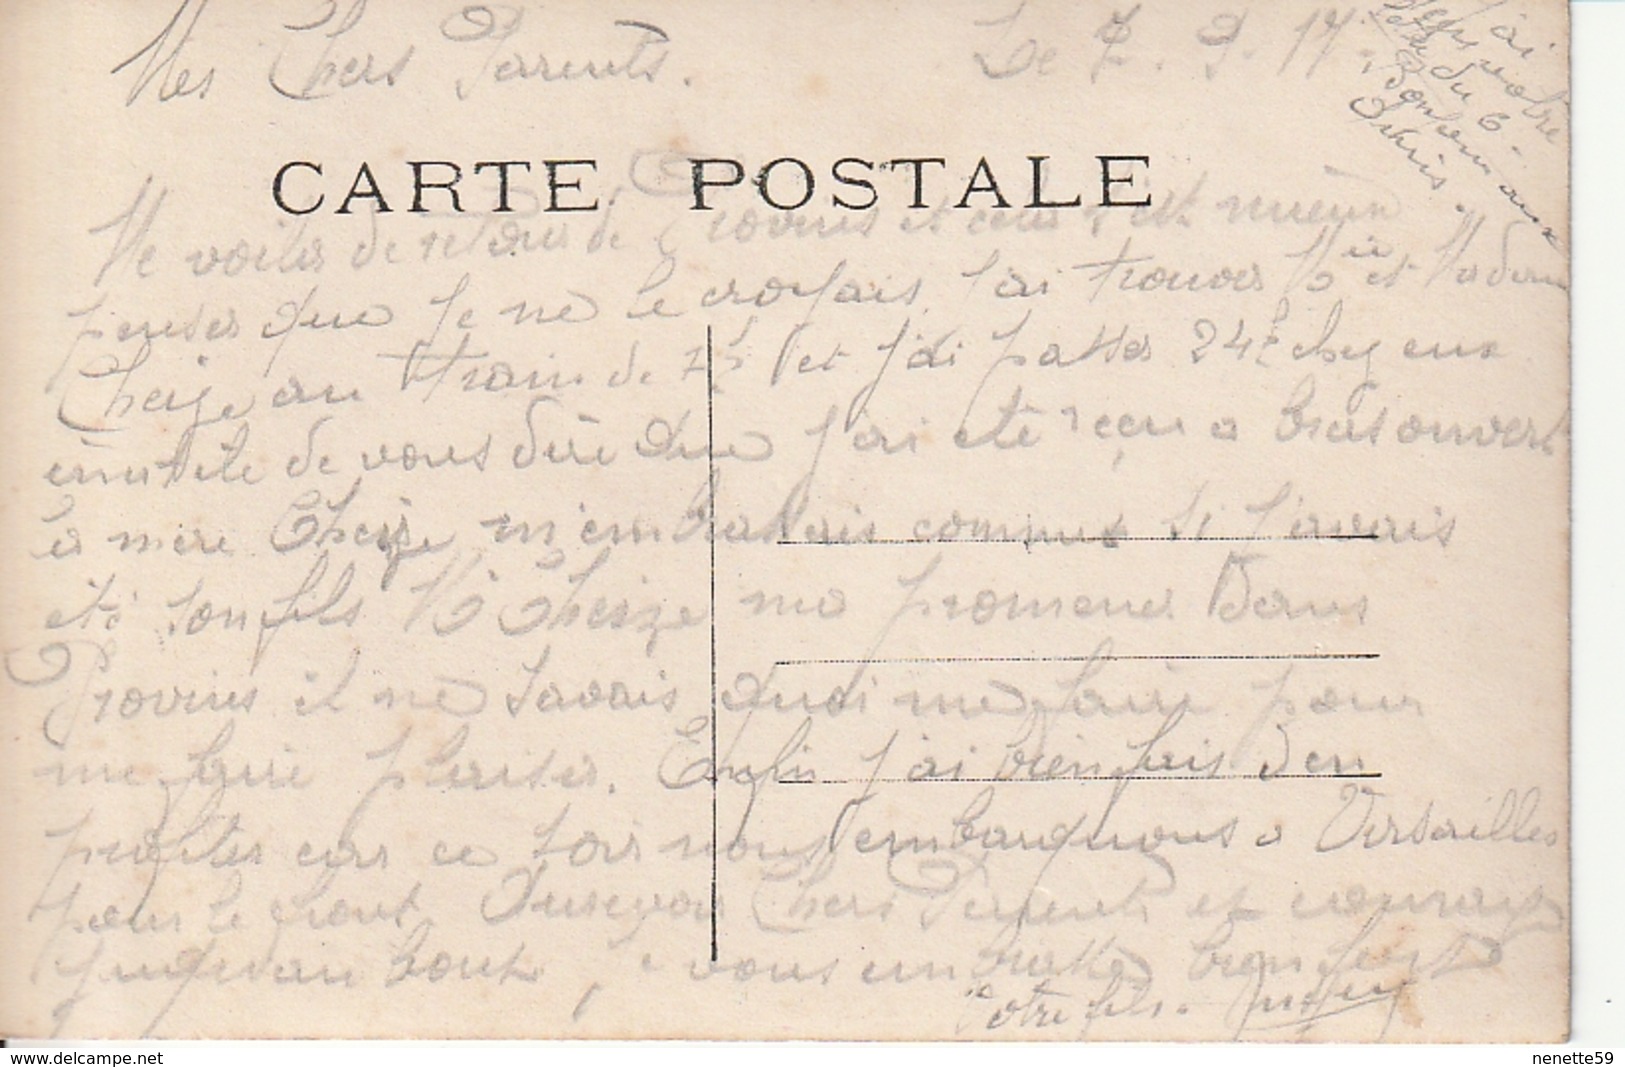 Mes Chers Parents. Le 7. 9. 17.
J'ai
reçu votre
lettre du 6.
Bonjour aux
Amis.
CARTE POSTALE
Me voila de retour de Provins et cela c'est mieux
penser que je ne le croyais. J'ai trouver Mr et Madame
Cheize au train de 7h et j'ai passer 24h chez eux
inutile de vous dire que j'ai ete reçu a bras ouvert
la mere Cheize m'embrassais comme si j'avais
été son fils Mr Cheize ma promener dans
Provins il ne savais quoi me faire pour
me faire plaisir. Enfin j'ai bien fais d'en
profiter car ce soir nous embarquons a Versailles
pour le front. Aurevoir Chers Parents et courage
jusqu'au bout, je vous embrasse bien fort
Votre fils.
www.delcampe.net
nenette59